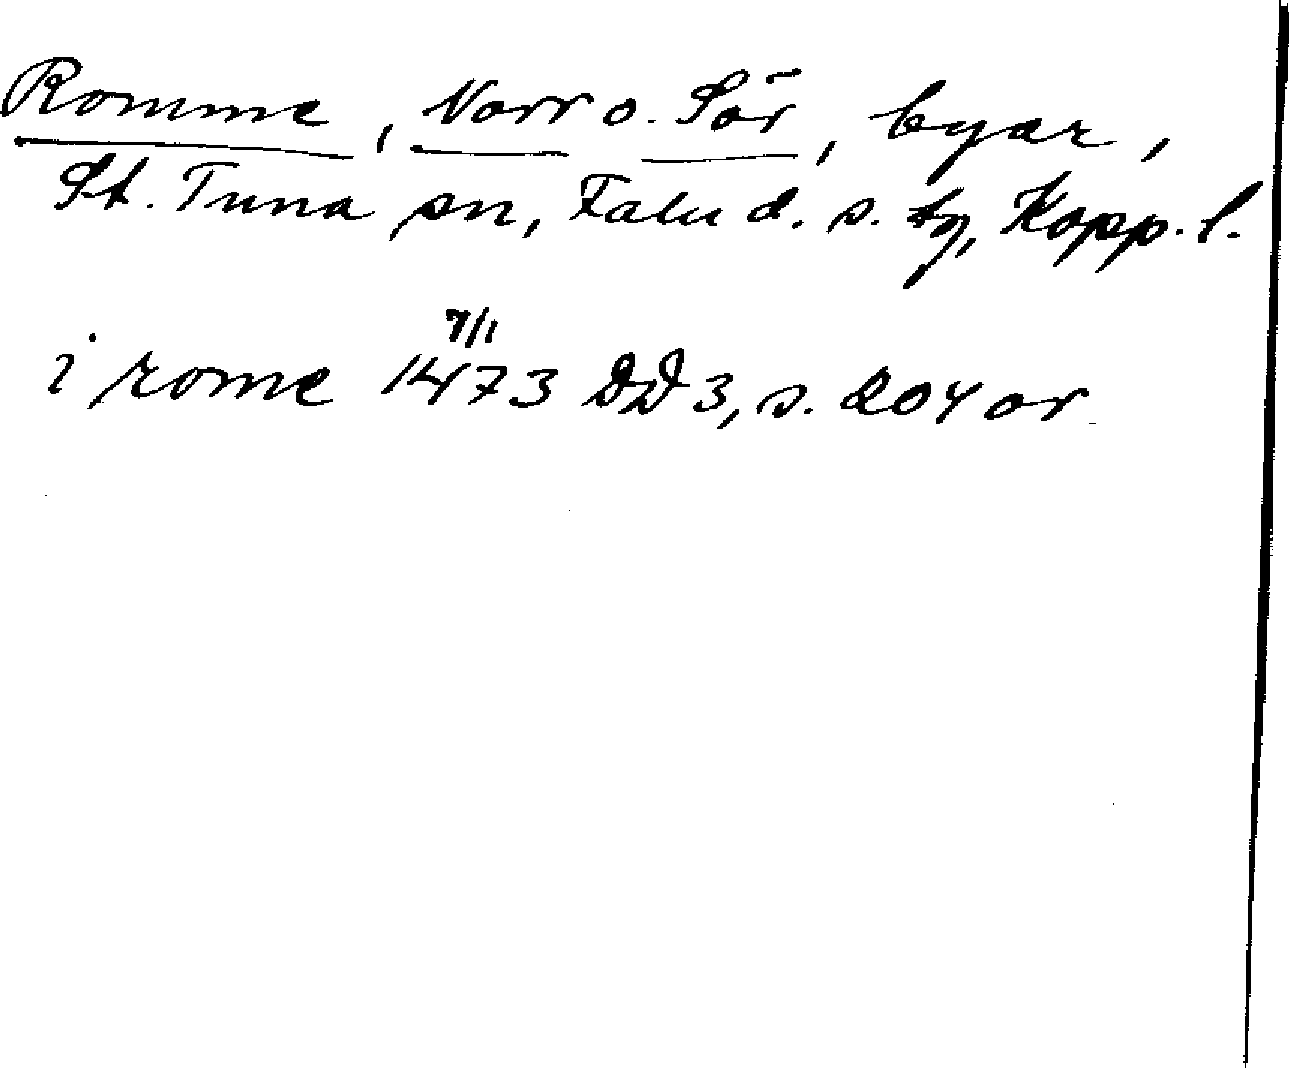 Romme, Norr o. Sör, byar,
St. Tuna sn, Falu d. s. tg, Kopp. l.
7/1
i rome 1473 DD 3, s. 204 or